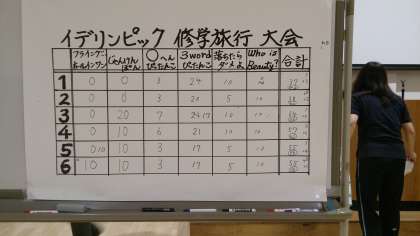 イデリンピック 修学旅行 大会
フライングホールインワン じゃんけんぽん ○へんぴったんこ 3wordぴったんこ 落ちたらダメよ Who is Beauty? 合計
1 0 0 3 24 10
2 0 0 3 20 5 10
3 0 20 7 24 17 10 10
4 0 10 6 21 10 10
5 0 10 10 3 17 5 10
6 10 10 3 17 5 10